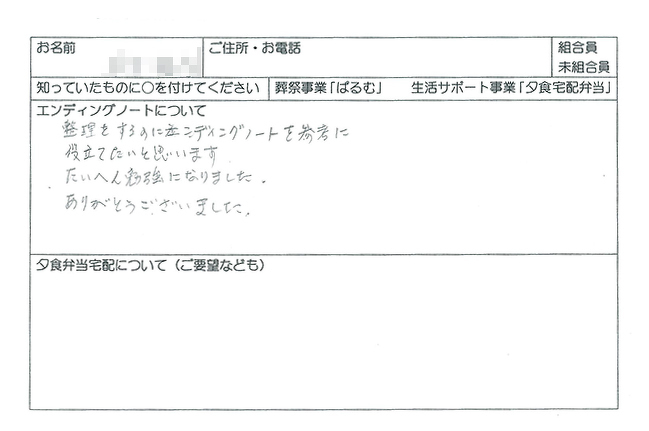 お名前
ご住所・お電話
組合員
未組合員
知っていたものに○を付けてください
葬祭事業「ぱるむ」
生活サポート事業「夕食宅配弁当」
エンディングノートについて
整理をするのにエンディングノートを参考に
役立てたいと思います
たいへん勉強になりました。
ありがとうございました。
夕食弁当宅配について（ご要望なども）